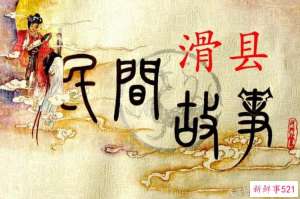 滑县
民間
故事
新鮮事521